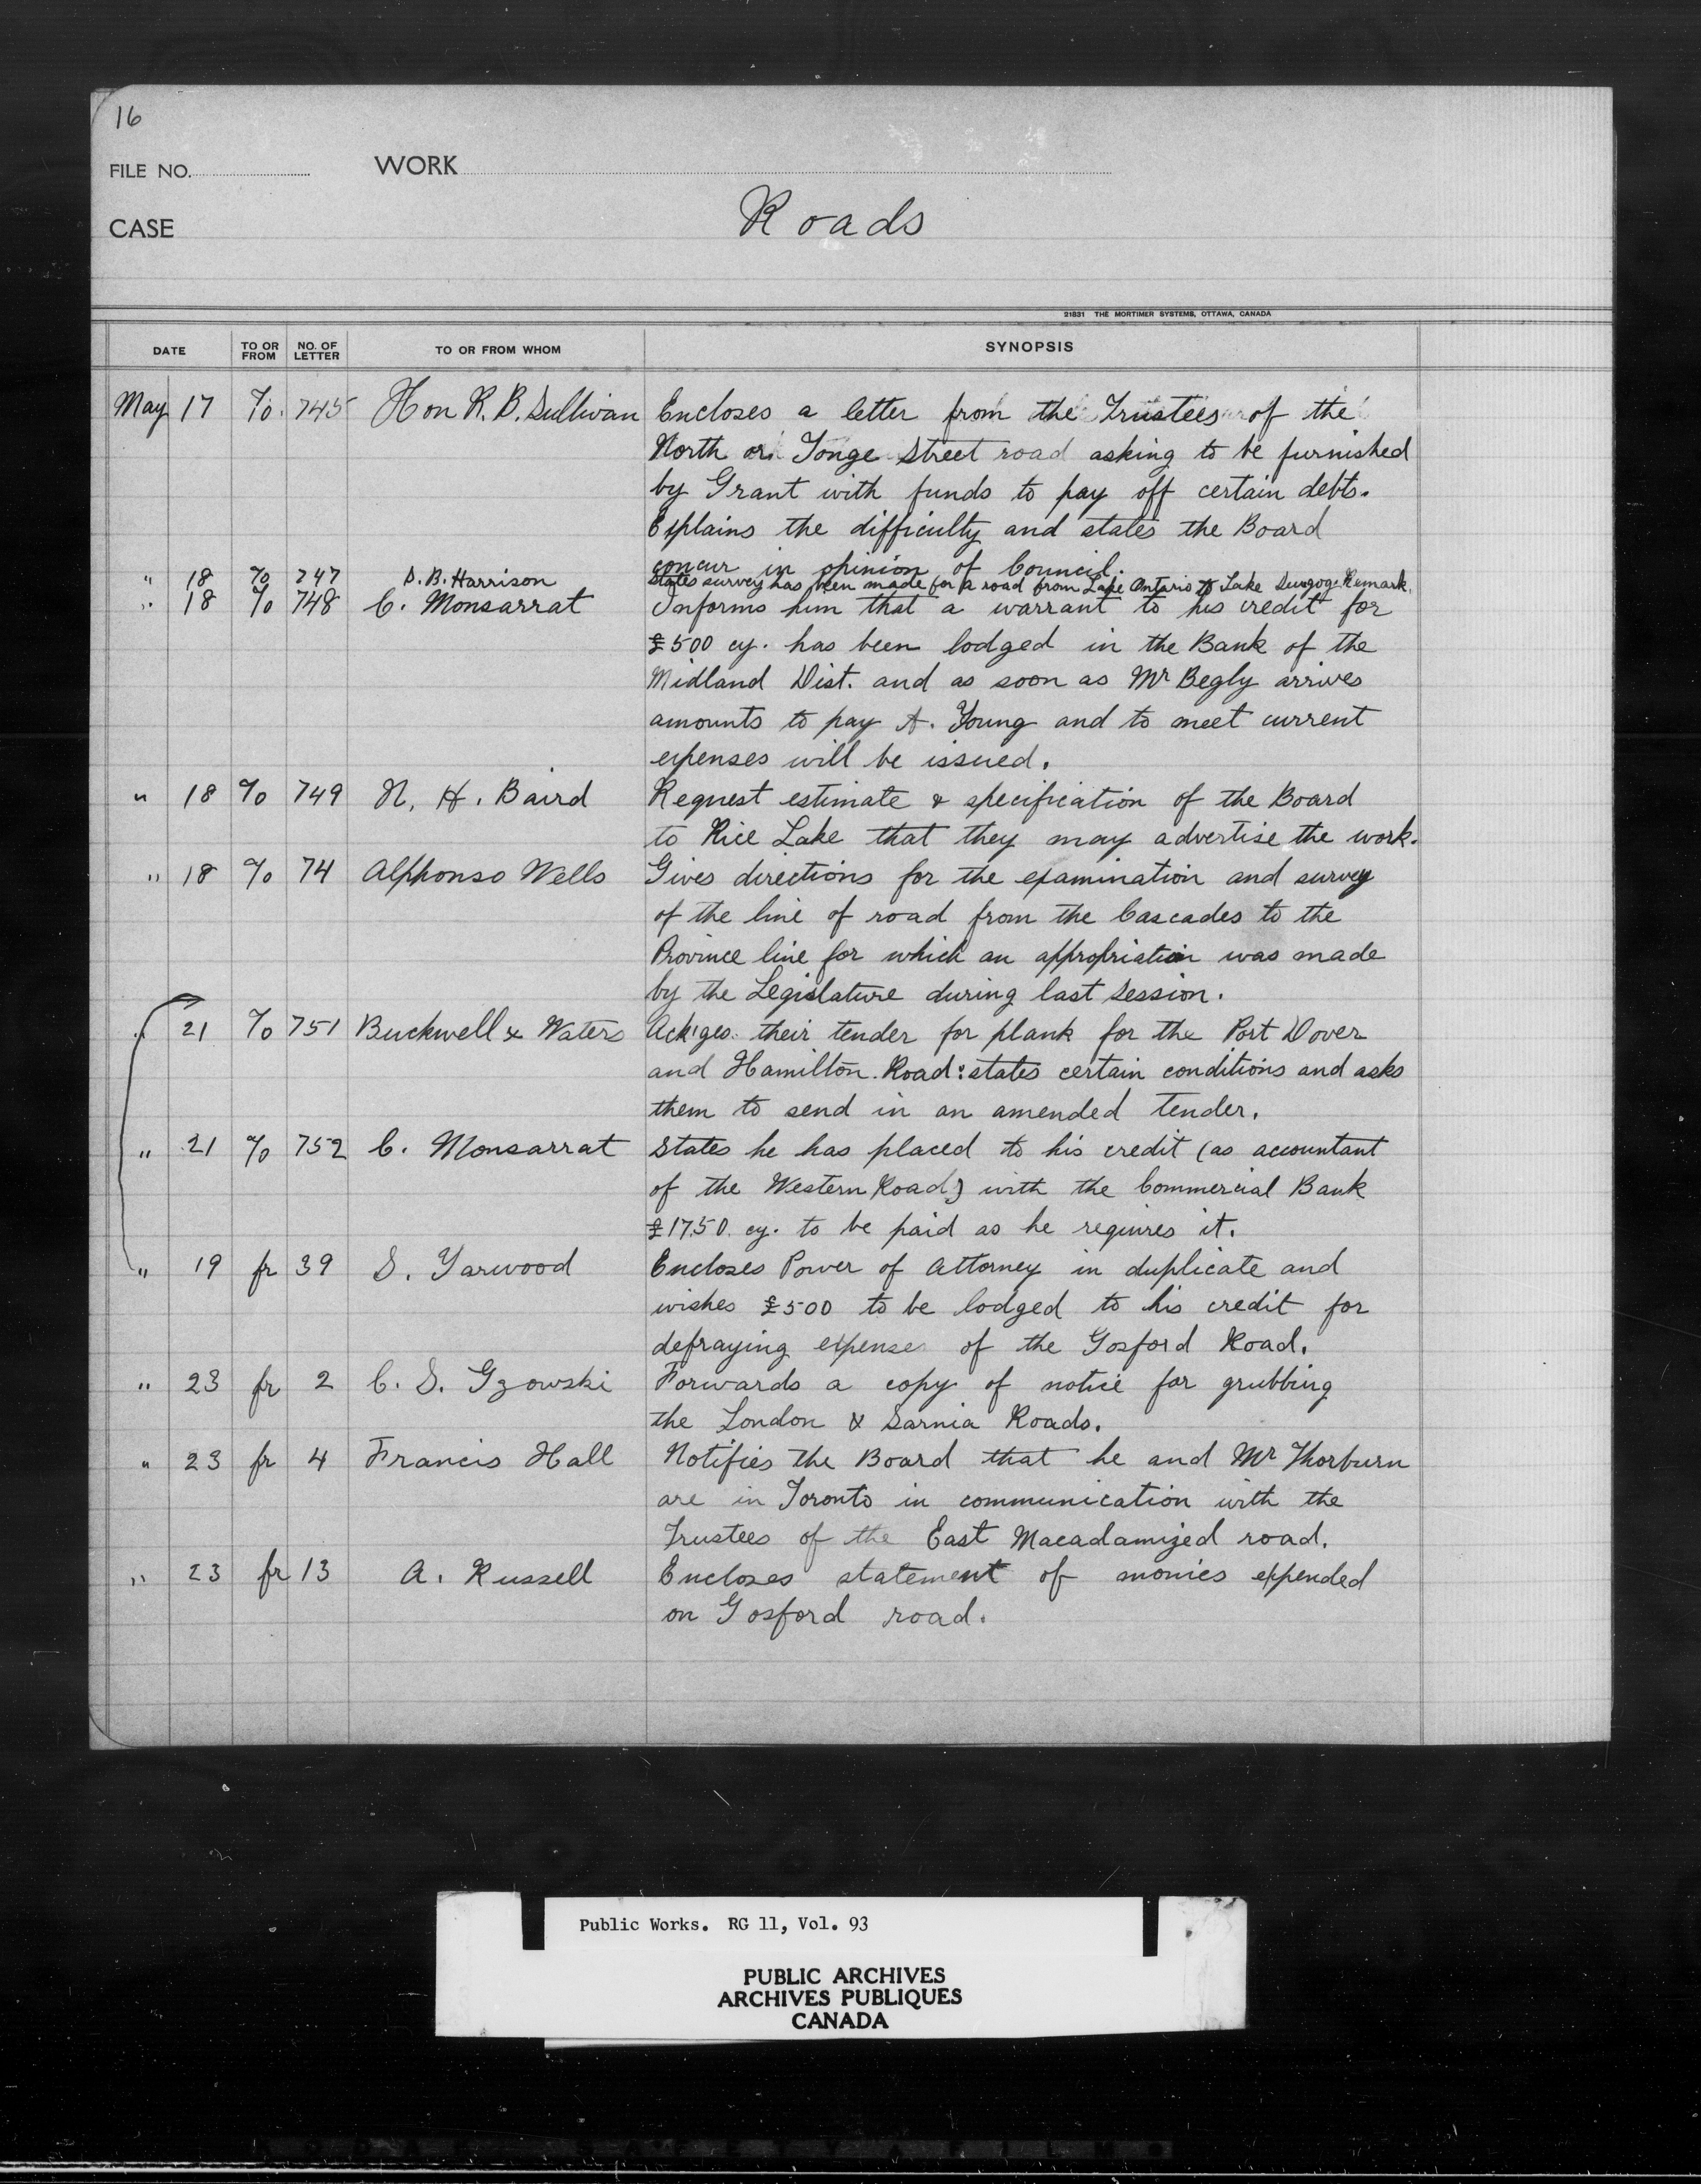 16
FILE NO. WORK
CASE Roads
21831 THE MORTIMER SYSTEMS, OTTAWA, CANADA
DATE TO OR FROM NO. OF LETTER TO OR FROM WHOM SYNOPSIS
May 17 To. 745 Hon R. B. Sullivan Encloses a letter from the Trustees of the
North or Yonge Street road asking to be furnished
by Grant with funds to pay off certain debts.
Explains the difficulty and states the Board
concur in opinion of Council.
" 18 To 747 S. B. Harrison States survey has been made for a road from Lake Ontario to Lake Remark.
" 18 To 748 C. Monsarrat Informs him that a warrant to his credit for
£500 cy. has been lodged in the Bank of the
Midland Dist. and as soon as Mr Begly arrives
amounts to pay A. Young and to meet current
expenses will be issued.
" 18 To 749 N. H. Baird Request estimate & specification of the Board
to Rice Lake that they may advertise the work.
" 18 To 74 Alphonso Wells Gives directions for the examination and survey
of the line of road from the Cascades to the
Province line for which an appropriation was made
by the Legislature during last session.
" 21 To 751 Buckwell & Waters Ack'ges. their tender for plank for the Port Dover
and Hamilton Road: states certain conditions and asks
them to send in an amended tender.
" 21 To 752 C. Monsarrat States he has placed to his credit (as accountant
of the Western Road) with the Commercial Bank
£1750 cy. to be paid as he requires it.
" 19 fr 39 S. Yarwood Encloses Power of Attorney in duplicate and
wishes £500 to be lodged to his credit for
defraying expenses of the Gosford Road.
" 23 fr 2 C. S. Gzowski Forwards a copy of notice for grubbing
the London & Sarnia Roads.
" 23 fr 4 Francis Hall Notifies the Board that he and Mr Thorburn
are in Toronto in communication with the
Trustees of the East Macadamized road.
" 23 fr 13 A. Russell Encloses statement of monies expended
on Gosford road.
Public Works. RG 11, Vol. 93
PUBLIC ARCHIVES
ARCHIVES PUBLIQUES
CANADA